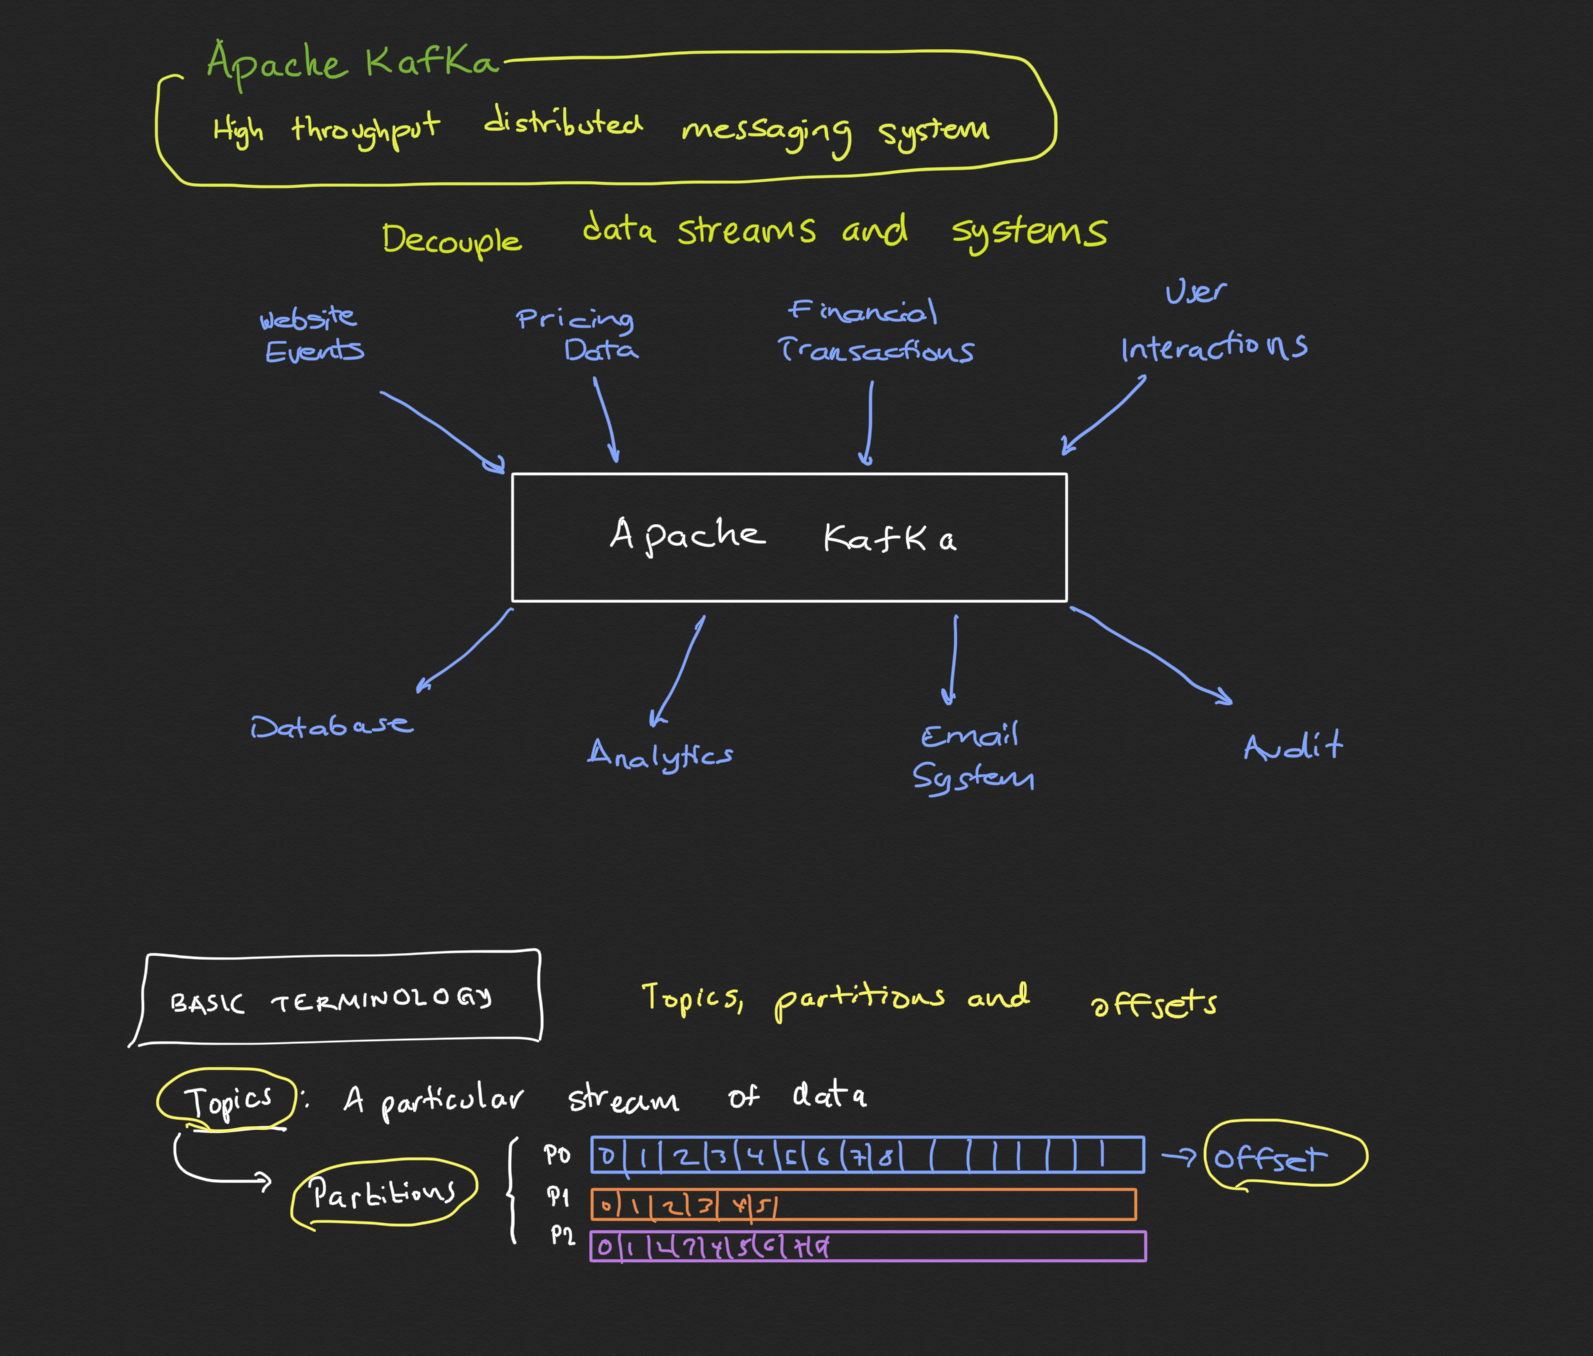 Apache Kafka
High throughput distributed messaging system
Decouple data streams and systems
Website Events
Pricing Data
Financial Transactions
User Interactions
Apache Kafka
Database
Analytics
Email System
Audit
BASIC TERMINOLOGY
Topics, partitions and offsets
Topics: A particular stream of data
Partitions
P0 0 1 2 3 4 5 6 7 8 → offset
P1 0 1 2 3 4 5
P2 0 1 2 3 4 5 6 7